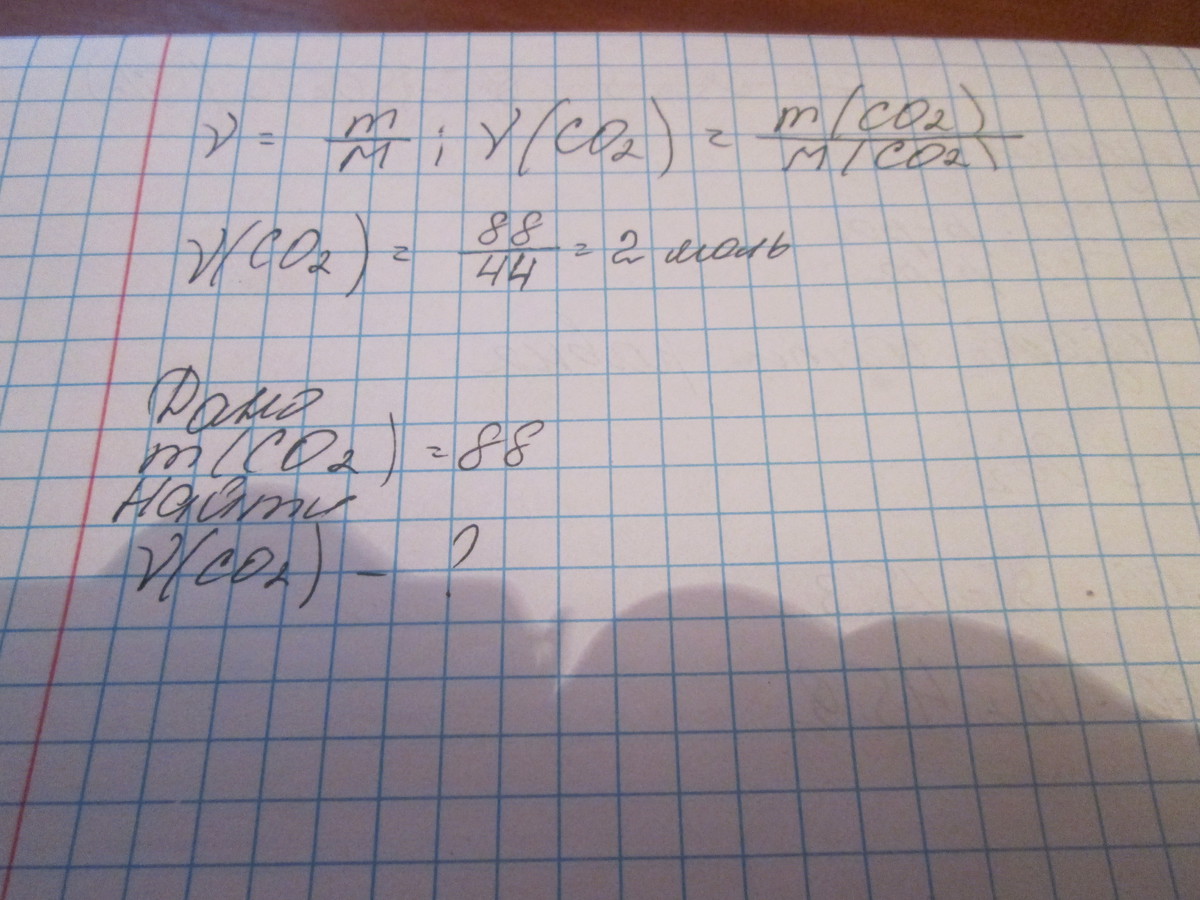 ν = m/M ; ν(CO₂) = m(CO₂)/M(CO₂)
ν(CO₂) = 88/44 = 2 моль
Дано
m(CO₂) = 88
Найти
ν(CO₂) - ?